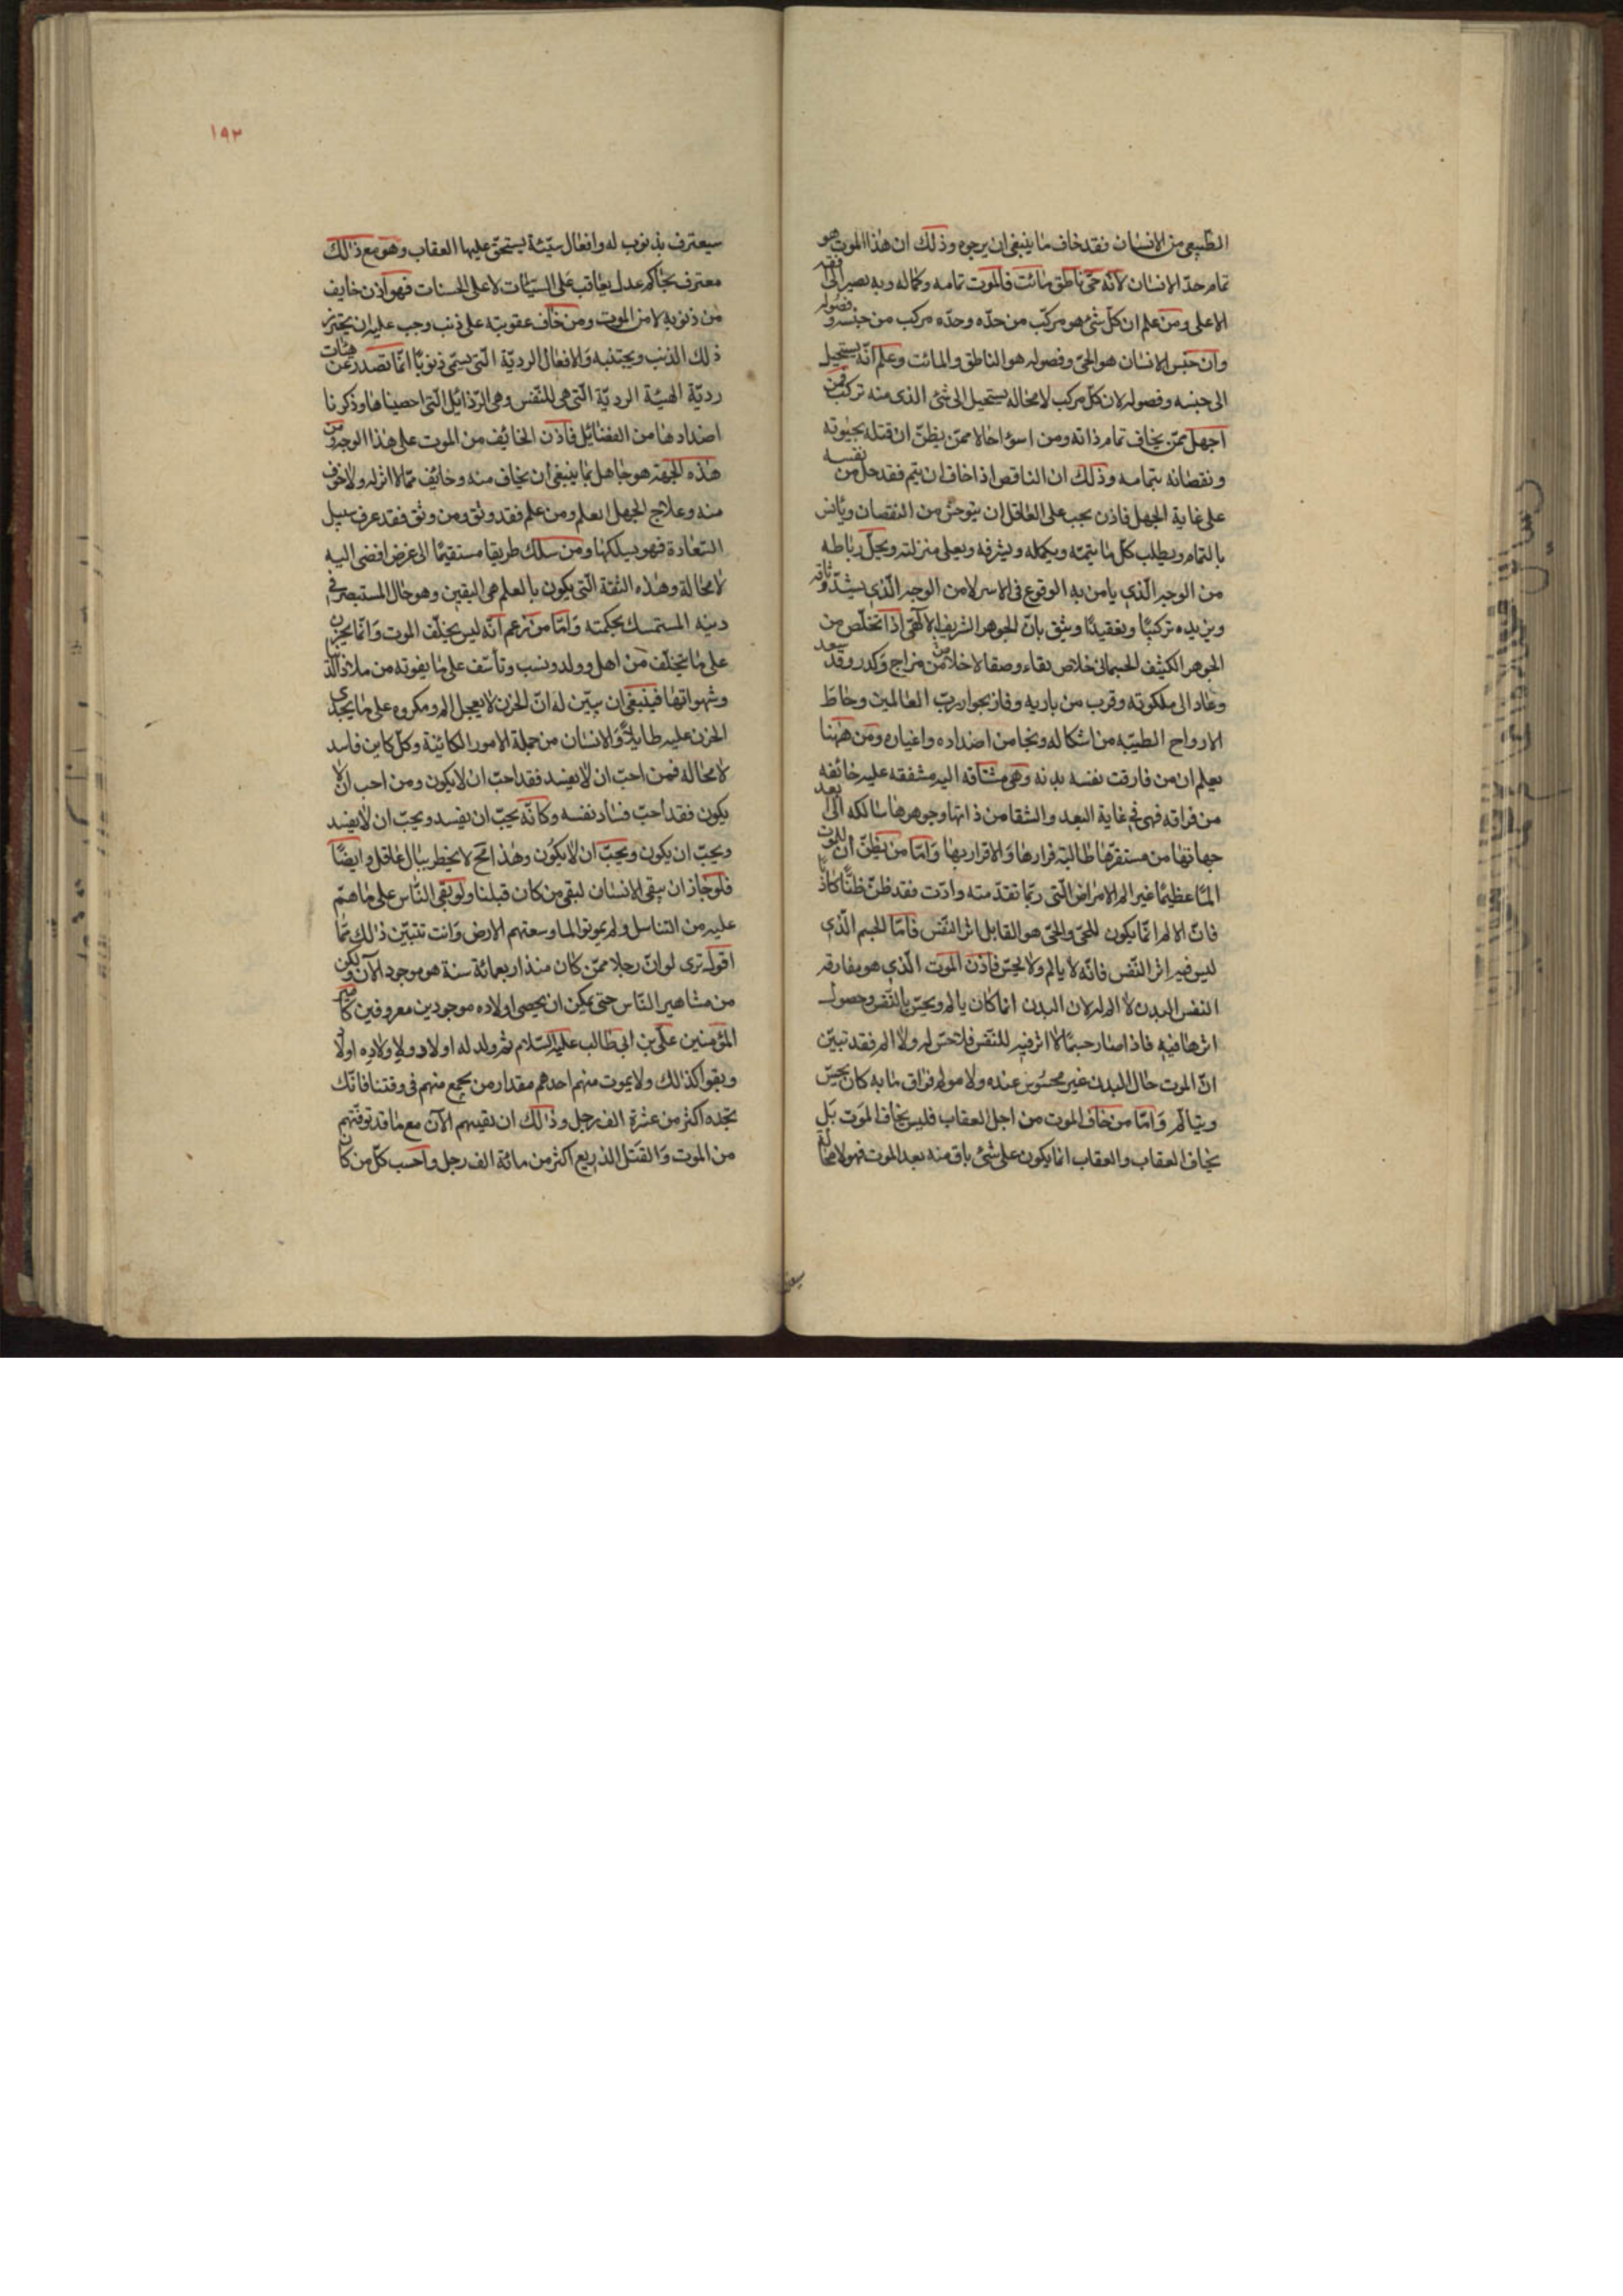 الطبيعى من الانسان فقد خاف ما ينبغى ان يرجوه وذلك ان هذا الموت هو
تمام حدّ الانسان لانّه حىّ ناطق مائت فالموت تمامه وكماله وبه يصير الى افقه
الاعلى ومن علم ان كلّ شئ هو مركّب من حدّه وحدّه مركب من جنسه وفصوله
وان جنس الانسان هو الحىّ وفصوله هو الناطق والمائت وعلم انّه يستحيل
الى جنسه وفصوله لان كلّ مركب لا محاله يستحيل الى شئ الذى منه تركّب فمن
اجهل ممّن يخاف تمام ذاته ومن اسوء حالا ممّن يظنّ ان قتله بحيوته
ونقصانه بتمامه وذلك ان الناقص اذا خاف ان يتم فقد جهل من نفسه
على غاية الجهل فاذن يجب على العاقل ان يتوحش من النقصان ويأنس
بالتمام ويطلب كلّ ما يتمّه ويكمله ويشرفه ويعلى منزلته ويحلّ رباطه
من الوجه الّذى يامن به الوقوع فى الاسر لا من الوجه الّذى يشدّ وثاقه
ويزيده تركيبًا وتعقيدًا ويثق بانّ الجوهر الشريف الالٓهى اذا تخلّص من
الجوهر الكثيف الجسمانى خلاص بقاء وصفا لا خلاص مزاج وكدر وقد سعد
وعاد الى ملكوته وقرب من باريه وفاز بجوار ربّ العالمين وخاط
الارواح الطيّبه من اشكاله ونجا من اضداده واغياره ومن ههنا
يعلم ان من فارقت نفسه بدنه وهى مشتاقه اليه مشفقه عليه خائفه
من فراقه فهى فى غاية البعد والشقا من ذاتها وجوهرها سالكه الى ابعد
جهاتها من مستقرّها طالبته قرارها والاقرار بها وامّا من يظنّ ان للموت
المًا عظيمًا غير الم الامراض الّتى ربّما تقدّمته وادّت فقد ظنّ ظنًّا كاذبًا
فانّ الالم انّما يكون للحىّ والحىّ هو القابل اثر النّفس فامّا الجسم الّذى
ليس فيه اثر النّفس فانّه لا يالم ولا يحسّ فاذن الموت الّذى هو مفارقه
النفس البدن لا الم له لان البدن انما كان يالم ويحسّ بالنّفس وحصول
اثرها فيه فاذا صار جسمًا لا اثر فيه للنّفس فلا حسّ له ولا الم فقد تبيّن
انّ الموت حال للبدن غير محسوس عنده ولا مولم فراق ما به كان يحسّ
ويتالّم وامّا من خاف الموت من اجل العقاب فليس يخاف الموت بل
يخاف العقاب والعقاب انما يكون على شئ باق منه بعد الموت فهو لا محالة
١٩٢
سيعترف بذنوب له وافعال سيّئة يستحقّ عليها العقاب وهو مع ذالك
معترف بحاكم عدل يعاقب على السيّئات لا على الحسنات فهو اذن خايف
من ذنوبه لا من الموت ومن خاف عقوبته على ذنب وجب عليه ان يحترز
ذلك الذنب ويجتنبه والافعال الرديّة الّتى يسمّى ذنوبًا انّما تصدر عن هيئات
رديّة الهيئة الرديّة الّتى هى للنّفس وهى الرّذائل الّتى احصيناها وذكرنا
اضدادها من الفضائل فاذن الخائف من الموت على هذا الوجه ومن
هذه الجهة هو جاهل بما ينبغى ان يخاف منه وخائف ممّا لا اثر له ولا خوف
منه وعلاج الجهل العلم ومن علم فقد وثق ومن وثق فقد عرف سبيل
السّعادة فهو يسلكها ومن سلك طريقا مستقيمًا الى غرض افضى اليه
لا محالة وهذه الثقة الّتى يكون بالعلم هى اليقين وهو حال المستبصر فى
دينه المستمسك بحكمته وامّا من زعم انّه ليس يخلّف الموت وانّما يحزن
على ما يتخلّف من اهل وولد ونسب وتأسّف على ما يفوته من ملاذّ الدّنيا
وشهواتها فينبغى ان يبيّن له انّ الحزن لا يعجل الم ومكروه على ما يجدى
الحزن عليه طايلًا والانسان من جملة الامور الكائنة وكلّ كاين فاسد
لا محاله فمن احبّ ان لا يفسد فقد احبّ ان لا يكون ومن احب ان لا
يكون فقد احبّ فساد نفسه وكانّه يحبّ ان يفسد ويحبّ ان لا يفسد
ويحبّ ان يكون ويحبّ ان لا يكون وهذا مح لا يخطر ببال عاقل وايضًا
فلو جاز ان يبقى الانسان لبقى من كان قبلنا ولو بقى النّاس على ما هم
عليه من التناسل ولم يموتوا لما وسعتهم الارض وانت تتبيّن ذلك ممّا
اقوله ترى لو انّ رجلا ممّن كان منذ اربعمائة سنة هو موجود الآن وليكن
من مشاهير النّاس حتى يمكن ان يحصى اولاده موجودين معروفين كامير
المؤمنين علىّ بن ابى طالب عليه السّلام ثمّ ولد له اولاد ولاولاده اولاد
وبقوا كذالك ولا يموت منهم احد كم مقدار من يجمع منهم فى وقتنا فانّك
تجده اكثر من عشرة الف رجل وذالك ان بقيتهم الآن مع ما قد توفّتهم
من الموت والقتل الذريع اكثر من مائة الف رجل واحسب كلّ من كان